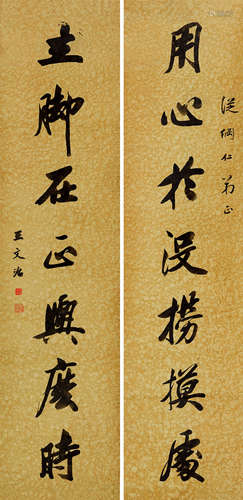 從綱仁弟正
用心於没撈摸處
立脚在正與麽時
王文治